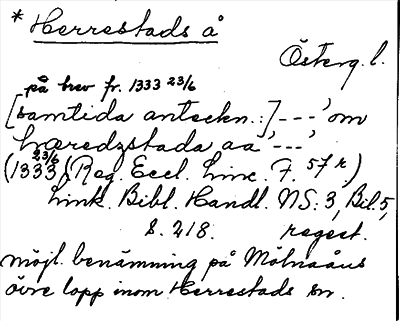 * Herrestads å
Österg. l.
på brev fr. 1333 23/6
[samtida anteckn.:] --- ' om
hæredzstada aa ' --- '
(1333 23/6 (Reg. Eccl. Linc. F. 57 r,)
Link. Bibl. Handl. NS: 3, Bil. 5,
s. 218. regest.
möjl. benämning på Mölnaåns
övre lopp inom Herrestads sn.